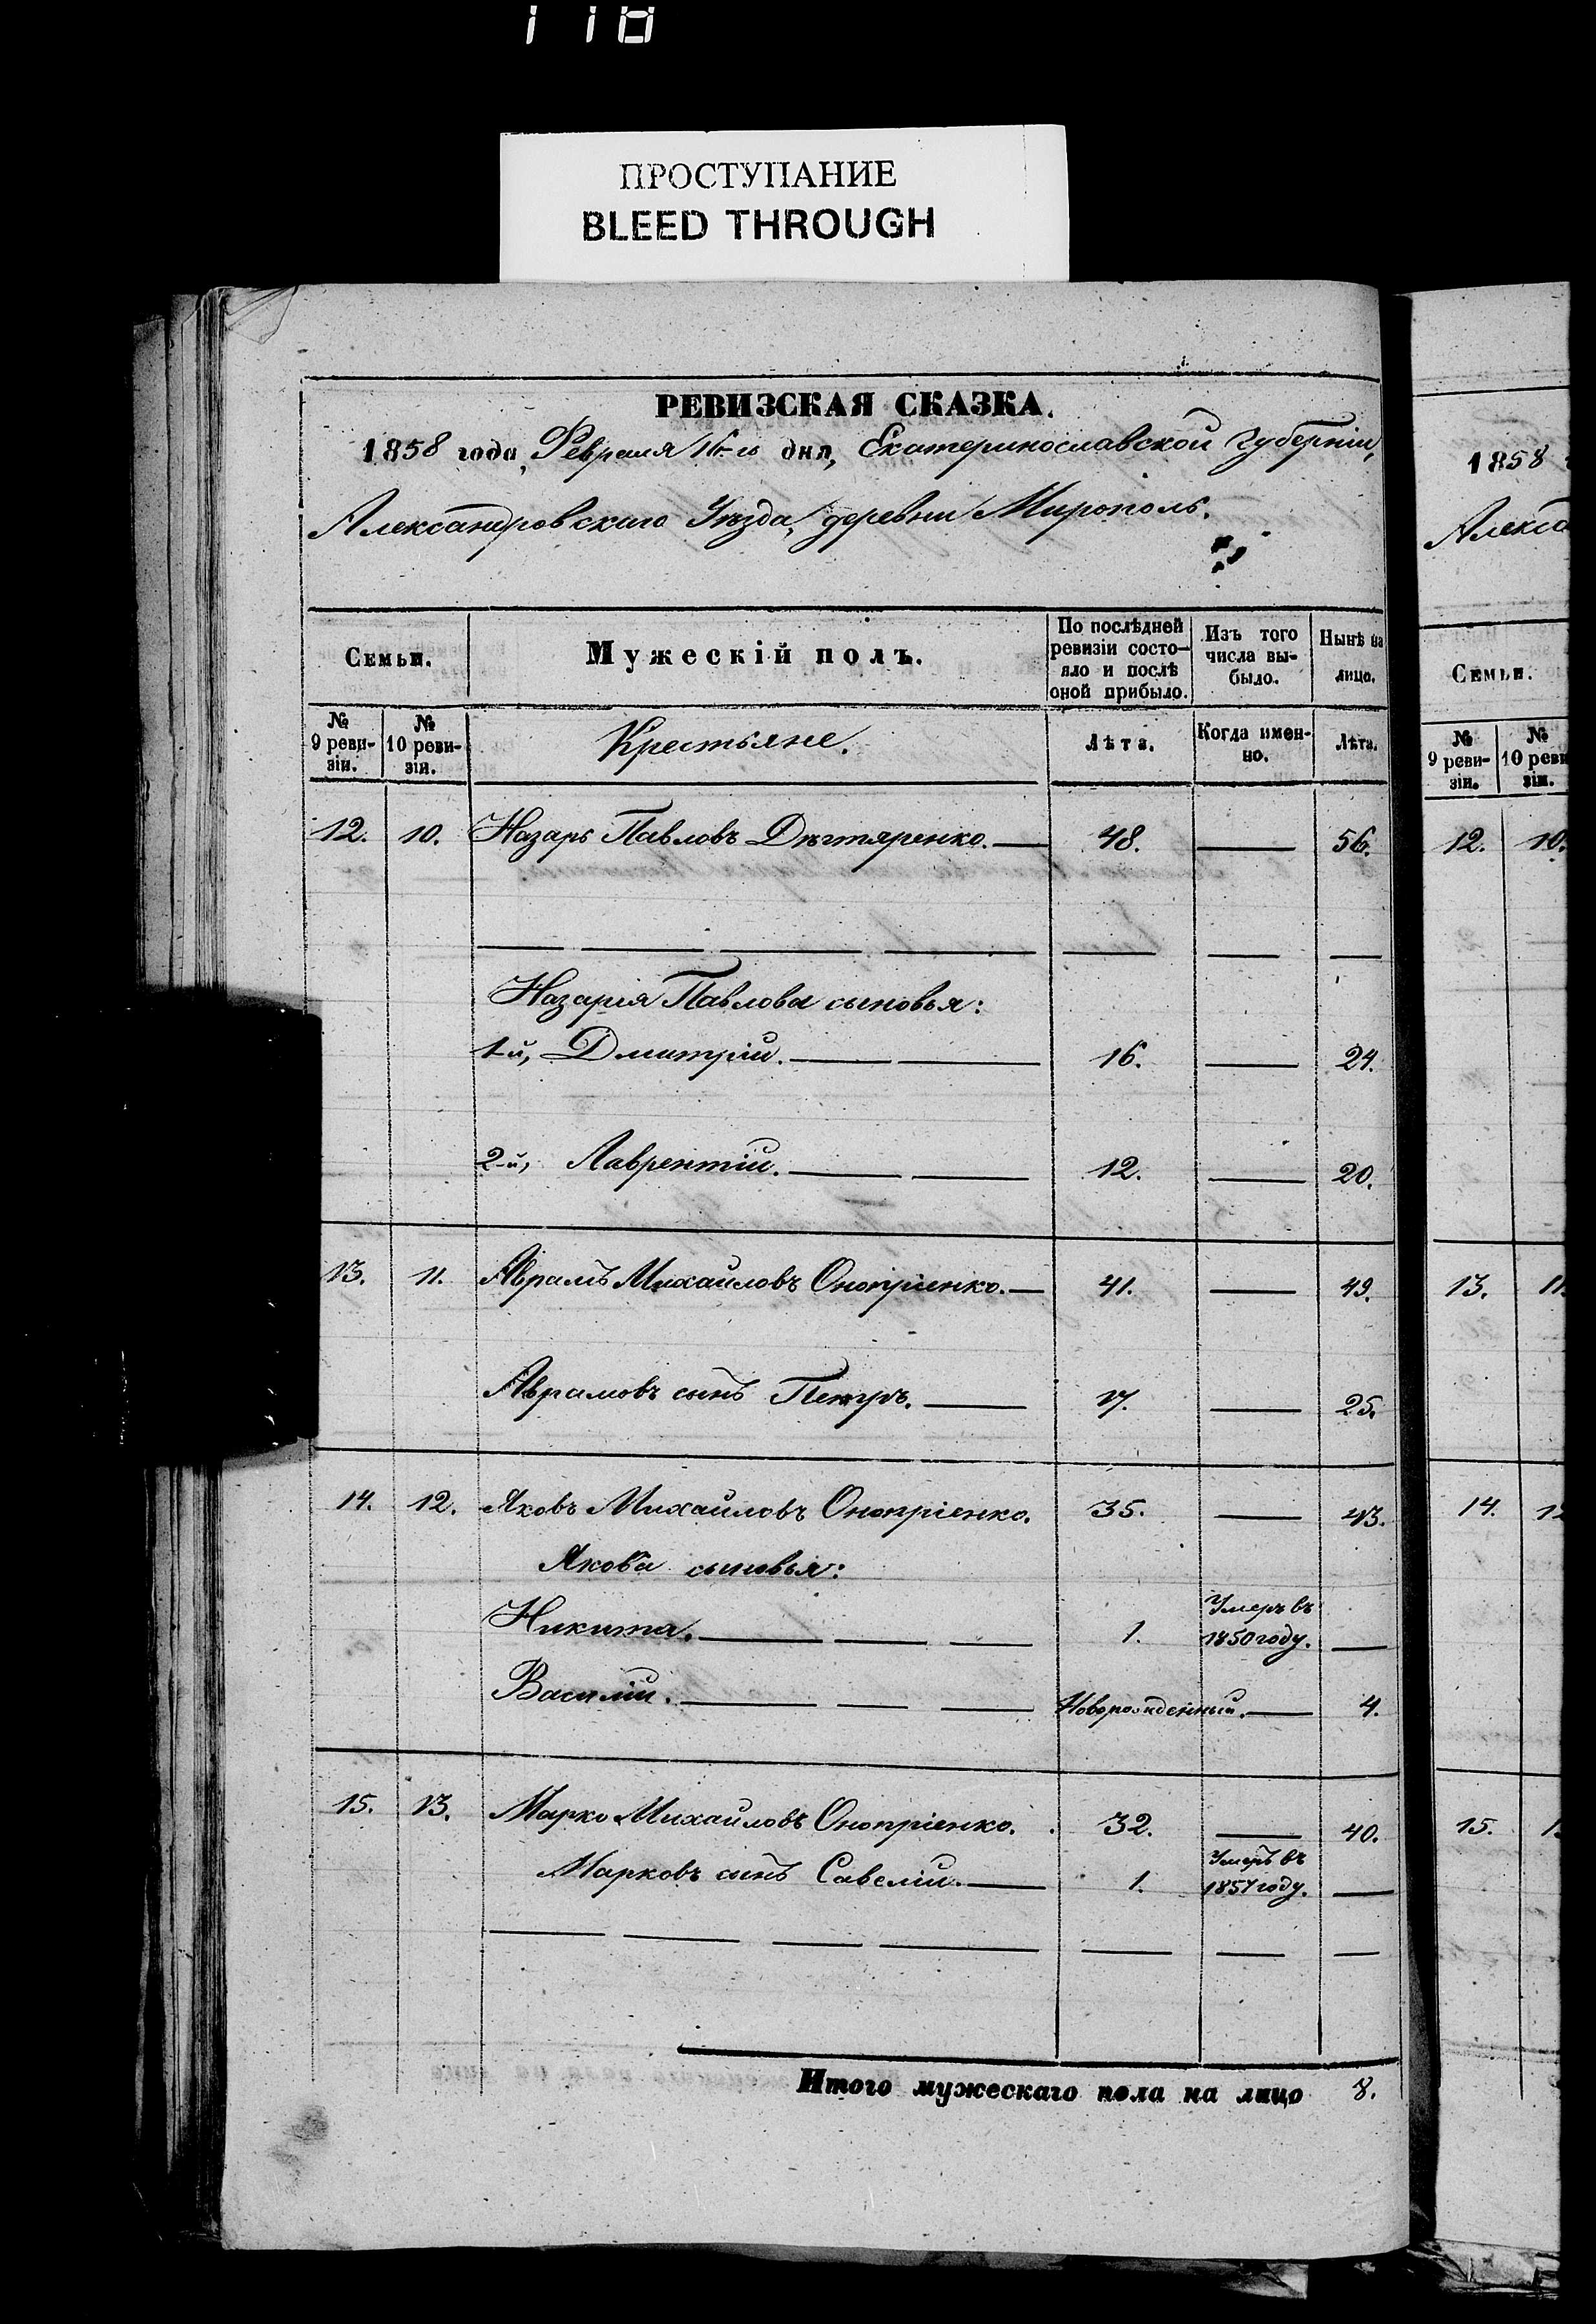 118
ПРОСТУПАНИЕ
BLEED THROUGH
РЕВИЗСКАЯ СКАЗКА.
1858 года, Февраля 16-го дня, Екатеринославской Губерніи,
Александровскаго Уѣзда, деревни Мирополь.
Семьи. Мужескій полъ. По послѣдней ревизіи состо-яло и послѣ оной прибыло. Изъ того числа вы-было. Нынѣ на лицо.
№ 9 реви-зіи. № 10 реви-зіи. Крестьяне. Лѣта. Когда имен-но. Лѣта.
12. 10. Назаръ Павловъ Дѣгтяренко. 48. 56.
Назарія Павлова сыновья:
1-й, Дмитрій. 16. 24.
2-й, Лаврентій. 12. 20.
13. 11. Аврамъ Михайловъ Онопріенко. 41. 49.
Аврамовъ сынъ Петръ. 17. 25.
14. 12. Яковъ Михайловъ Онопріенко. 35. 43.
Якова сыновья:
Никита. 1. Умеръ въ 1850 году.
Василій. Новорожденный. 4.
15. 13. Марко Михайловъ Онопріенко. 32. 40.
Марковъ сынъ Савелій. 1. Умеръ въ 1857 году.
Итого мужескаго пола на лицо 8.
1858
Алекса
Семьи.
№ 9 реви-зіи. № 10 реви зіи.
12. 10.
13. 11.
14. 12
15. 1